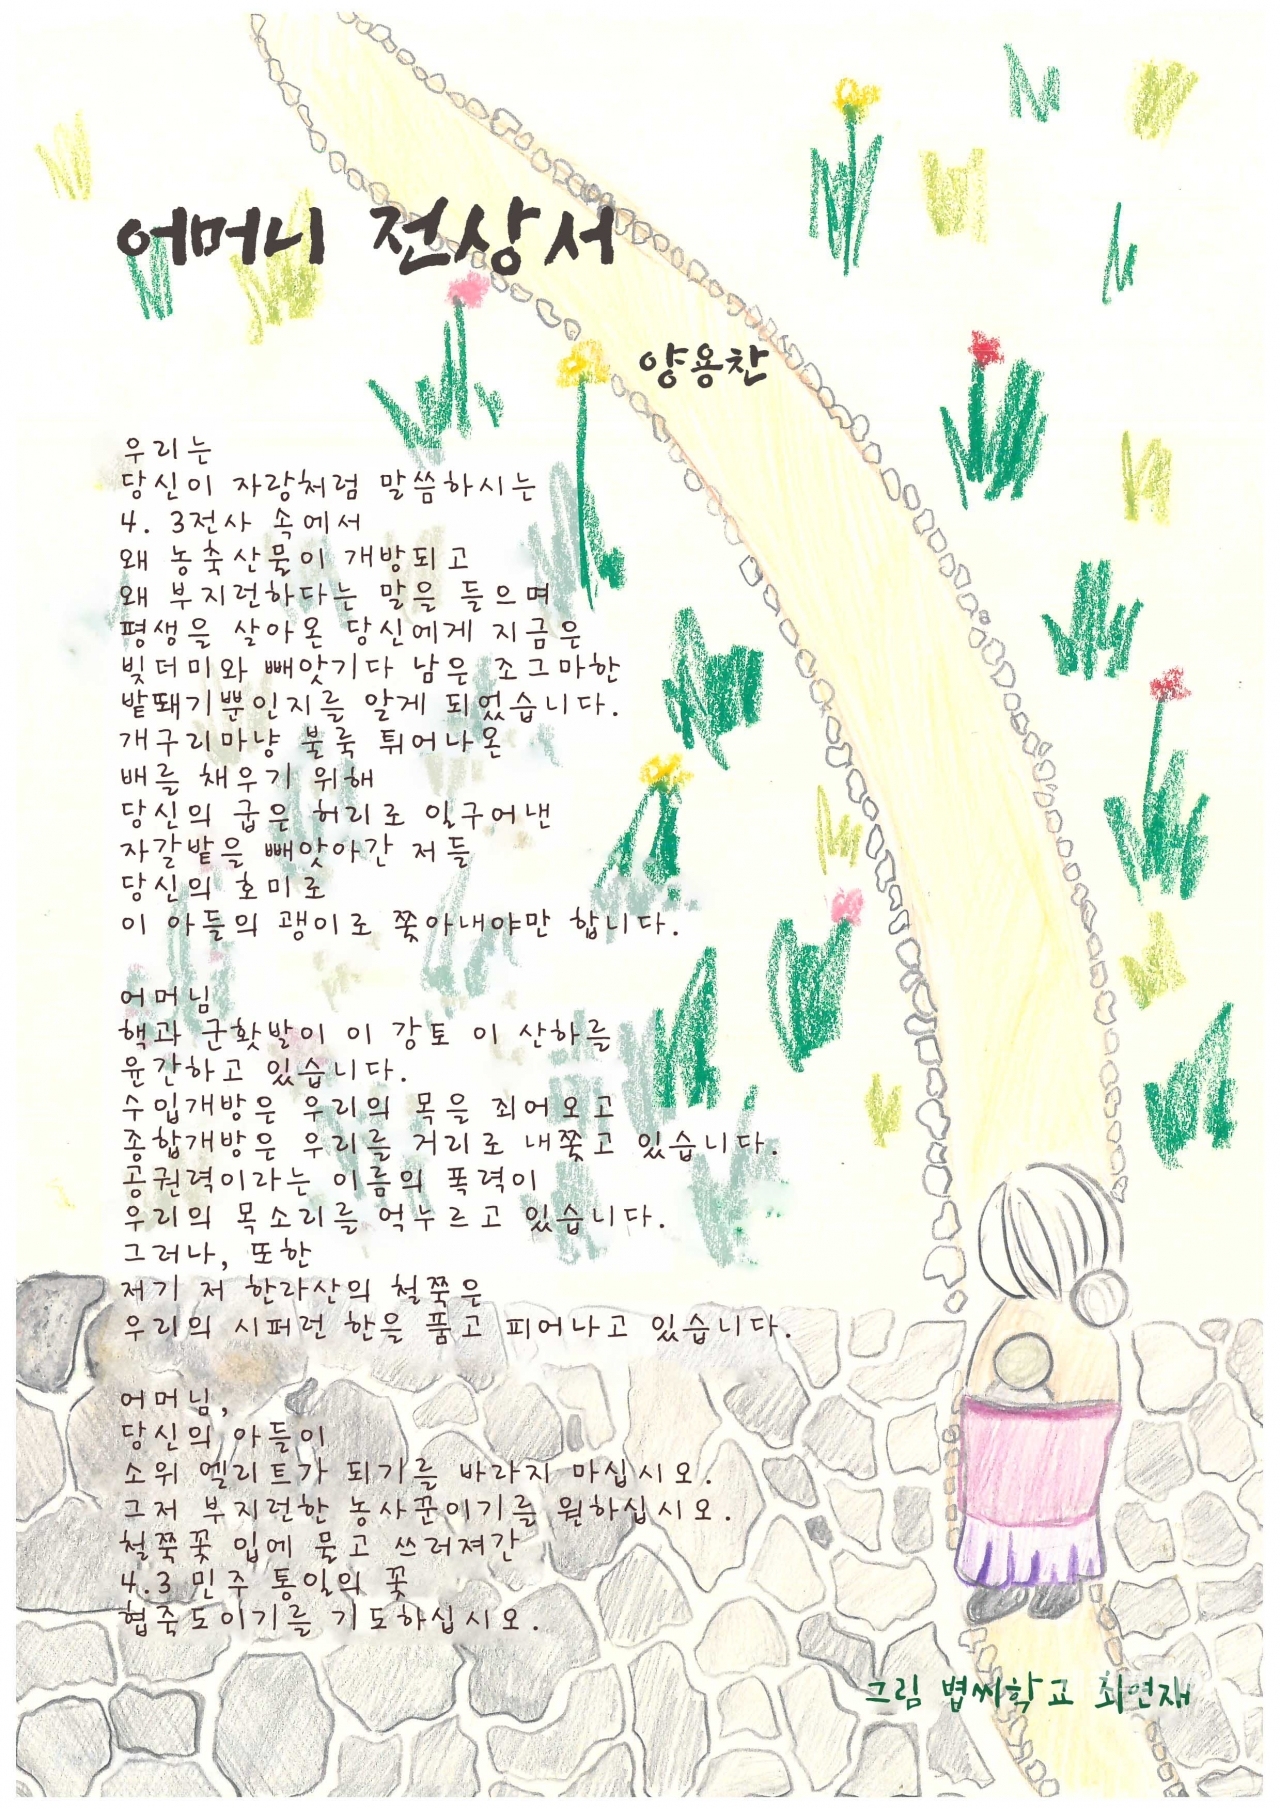 어머니 전상서
양용찬
우리는
당신이 자랑처럼 말씀하시는
4. 3전사 속에서
왜 농축산물이 개방되고
왜 부지런하다는 말을 들으며
평생을 살아온 당신에게 지금은
빚더미와 빼앗기다 남은 조그마한
밭뙈기뿐인지를 알게 되었습니다.
개구리마냥 불룩 튀어나온
배를 채우기 위해
당신의 굽은 허리로 일구어낸
자갈밭을 빼앗아간 저들
당신의 호미로
이 아들의 괭이로 쫓아내야만 합니다.
어머님
핵과 군홧발이 이 강토 이 산하를
윤간하고 있습니다.
수입개방은 우리의 목을 죄어오고
종합개방은 우리를 거리로 내쫓고 있습니다.
공권력이라는 이름의 폭력이
우리의 목소리를 억누르고 있습니다.
그러나, 또한
저기 저 한라산의 철쭉은
우리의 시퍼런 한을 품고 피어나고 있습니다.
어머님,
당신의 아들이
소위 엘리트가 되기를 바라지 마십시오.
그저 부지런한 농사꾼이기를 원하십시오.
철쭉꽃 입에 물고 쓰러져간
4.3 민주 통일의 꽃
협죽도이기를 기도하십시오.
그림 볍씨학교 최연재